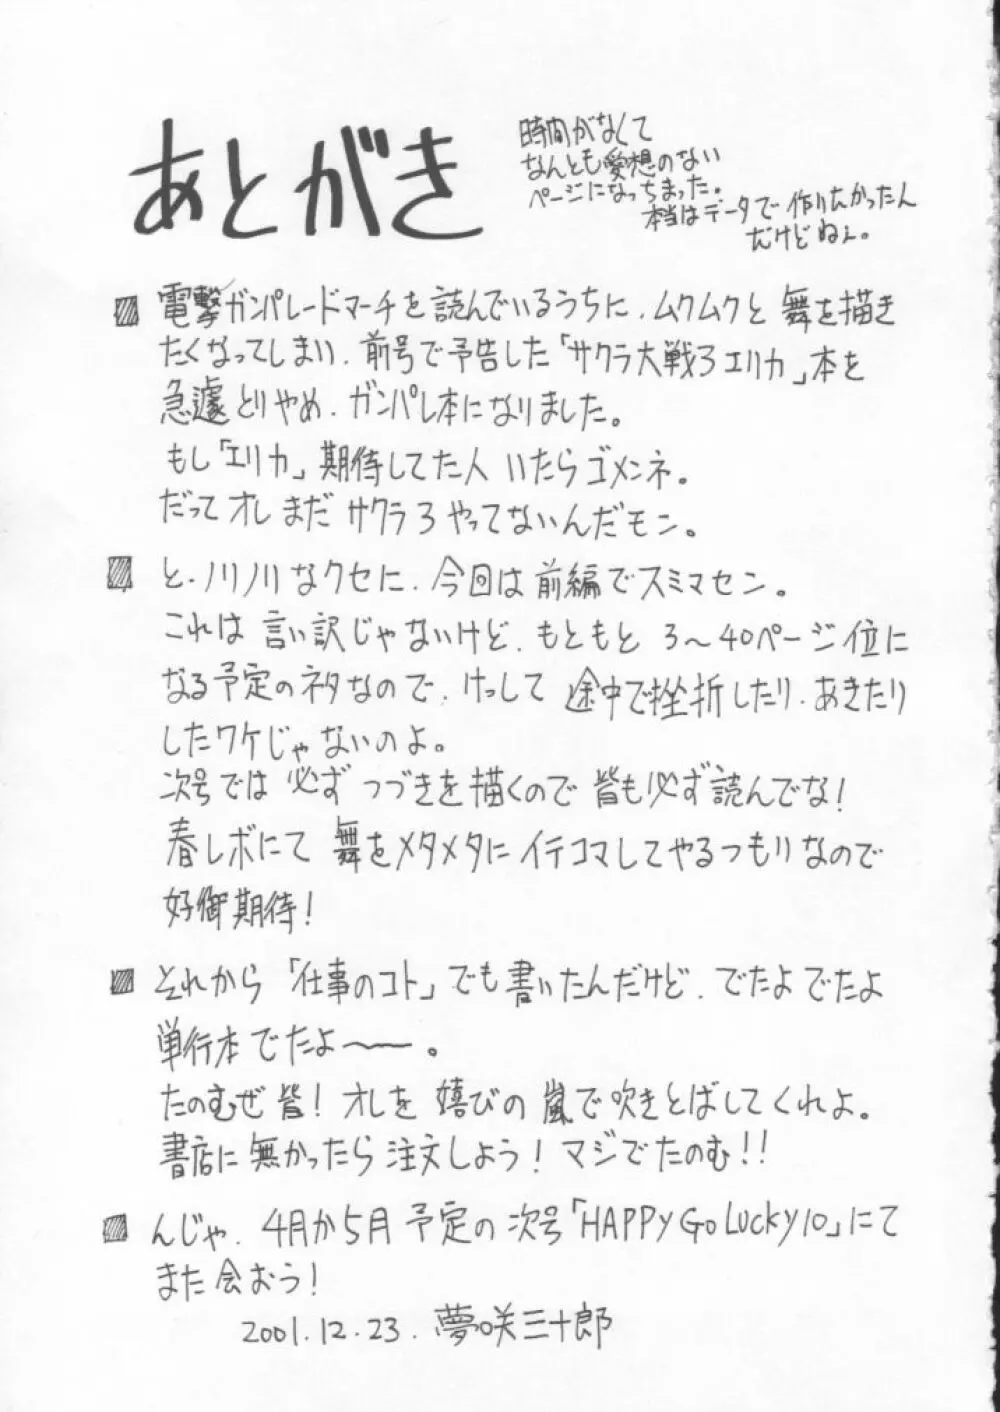 あとがき
時間がなくて
なんとも愛想のない
ページになっちまった。
本当はデータで作りたかったん
だけどねぇ。
電撃ガンパレードマーチを読んでいるうちに、ムクムクと舞を描き
たくなってしまい、前号で予告した「サクラ大戦3エリカ」本を
急遽とりやめ、ガンパレ本になりました。
もし「エリカ」期待してた人いたらゴメンネ。
だってオレまだサクラ3やってないんだモン。
と、ノリノリなクセに、今回は前編でスミマセン。
これは言い訳じゃないけど、もともと3〜40ページ位に
なる予定のネタなので、けっして途中で挫折したり、あきたり
したワケじゃないのよ。
次号では必ずつづきを描くので皆も必ず読んでな!
春レボにて舞をメタメタにイテコマしてやるつもりなので
好御期待!
それから「仕事のコト」でも書いたんだけど、でたよでたよ
単行本でたよ〜〜。
たのむぜ皆!オレを嬉びの嵐で吹きとばしてくれよ。
書店に無かったら注文しよう!マジでたのむ!!
んじゃ、4月か5月予定の次号「HAPPY GO LUCKY10」にて
また会おう!
2001.12.23.夢咲三十郎